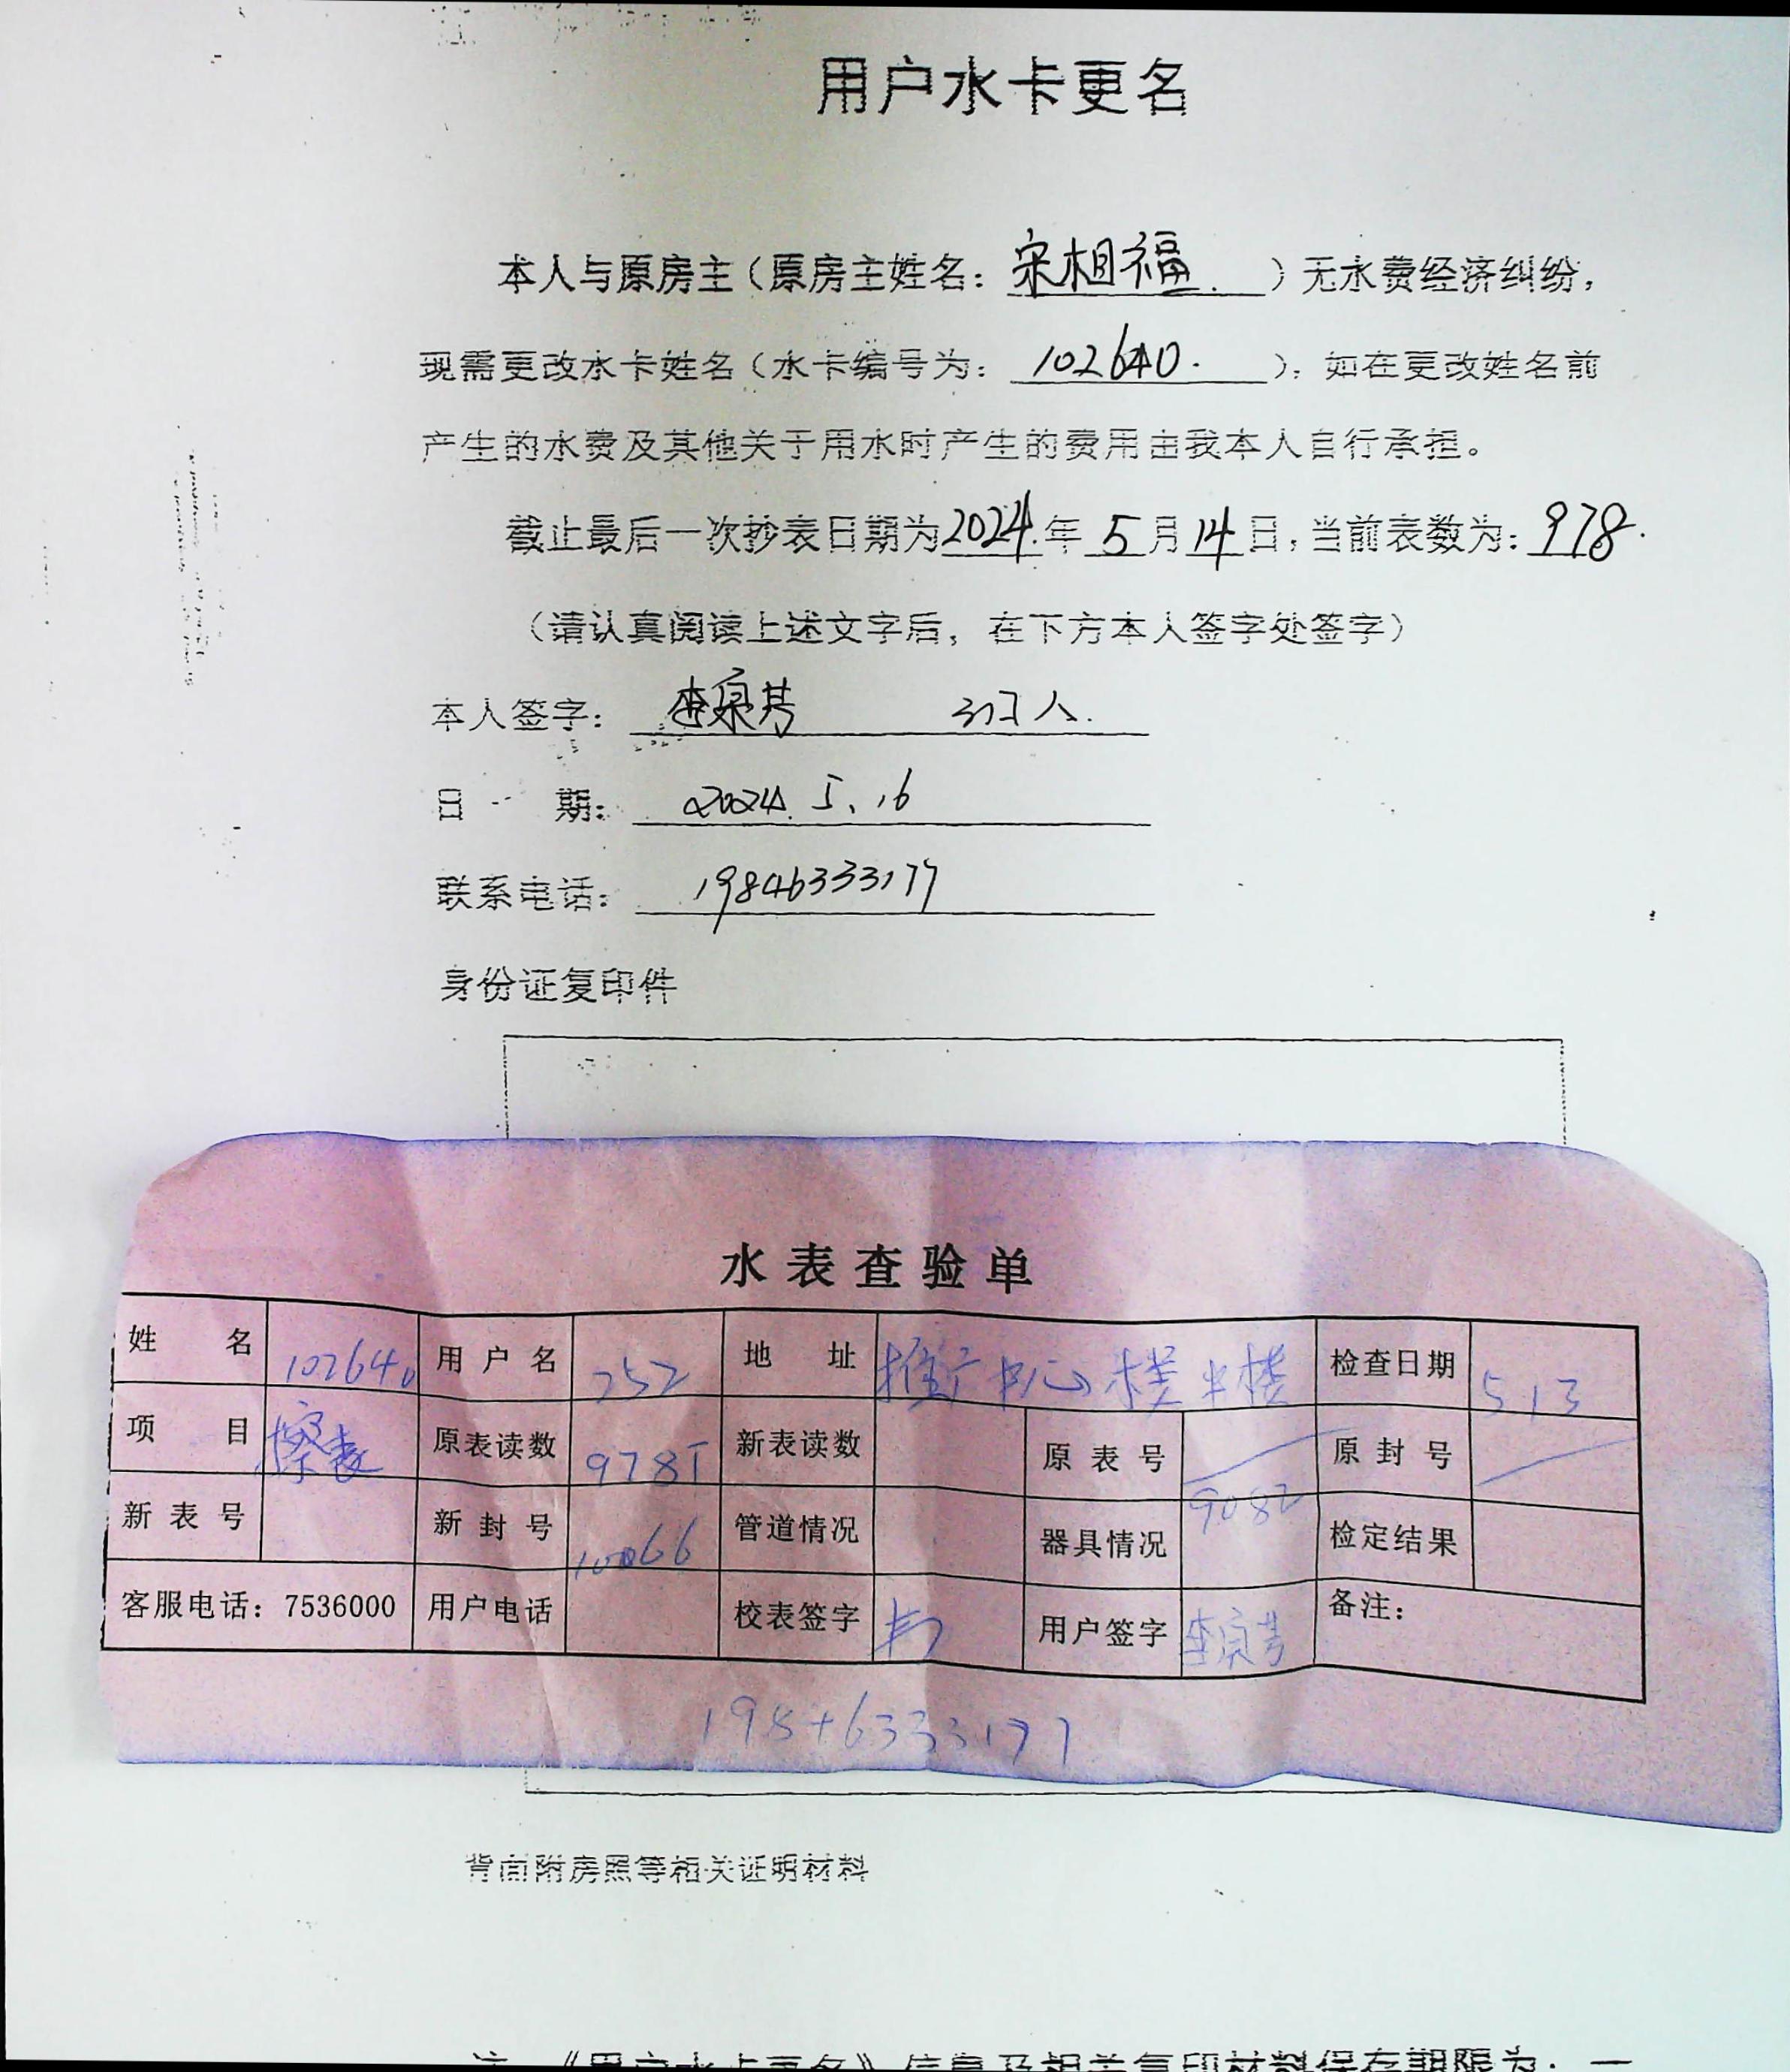 用户水卡更名
本人与原房主（原房主姓名：宋相福）无水费经济纠纷，
现需更改水卡姓名（水卡编号为：102640.），如在更改姓名前
产生的水费及其他关于用水时产生的费用由我本人自行承担。
截止最后一次抄表日期为2024.年5月14日，当前表数为：978.
（请认真阅读上述文字后，在下方本人签字处签字）
本人签字：李泉芳
日期：2024.5.16
联系电话：19846333177
身份证复印件
水表查验单
姓名 102640 用户名 252 地址 推广中心楼中楼 检查日期 513
项目 察表 原表读数 978T 新表读数 原表号 原封号
新表号 新封号 管道情况 器具情况 9082 检定结果
客服电话：7536000 用户电话 校表签字 用户签字 李泉芳 备注：
19846333177
背面附房照等相关证明材料
注：《用户水卡更名》信息及相关复印材料保存期限为：一